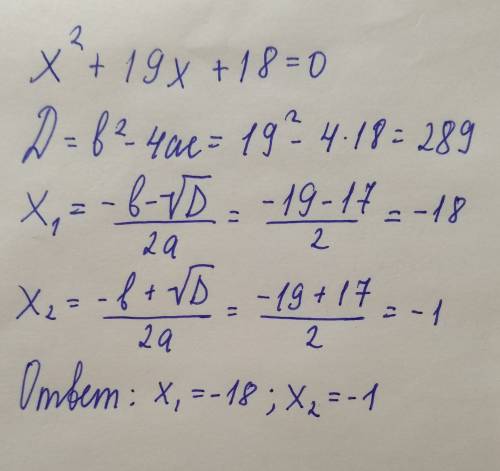 x² + 19x + 18 = 0
D = b² - 4ac = 19² - 4·18 = 289
x₁ = (-b-√D)/(2a) = (-19-17)/2 = -18
x₂ = (-b+√D)/(2a) = (-19+17)/2 = -1
Ответ: x₁ = -18; x₂ = -1